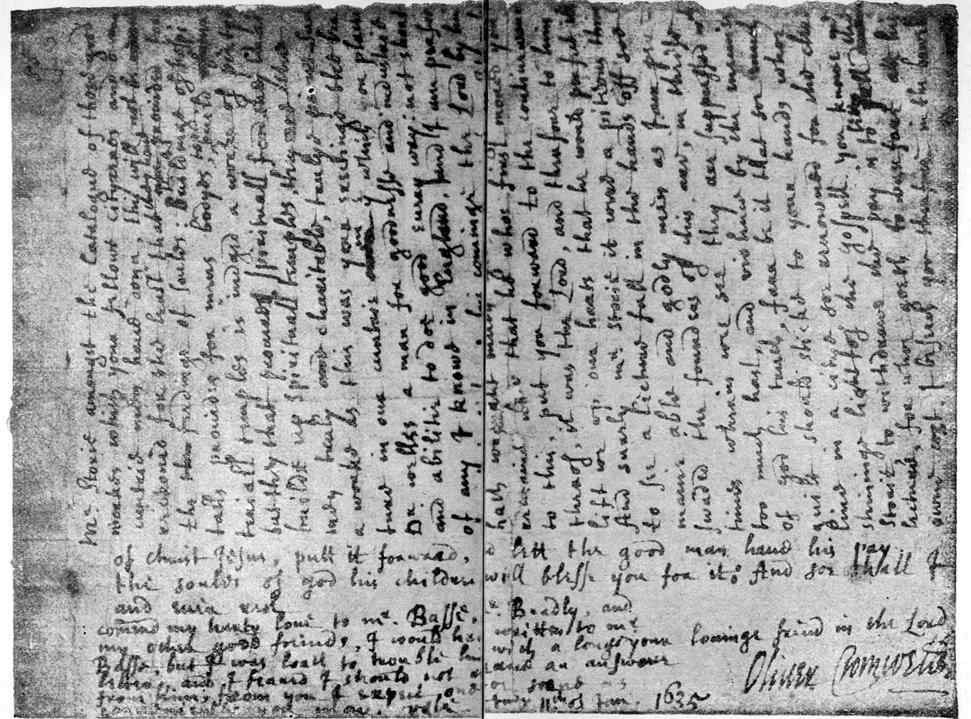 Mr Storie amongst the Catalogue of those good
workes which your fellowe citycenes and our
cuntrie men have donn, this will not bee
reckoned for the least that they have provided for
the feedinge of soules: Buildinge of hospi
talls provides for mens bodyes, to build
materiall temples is judged a worke of
but they that procure spirituall food, they that
builde up spirituall temples, they are the men
trulye charitable, trulye pious. Such
a worke as this was your erectinge the
lecture in our cuntrie in the which you placed
Dr Welles a man for goodnesse and industrie
and abilitie to doe good every way: not short
of any I knowe in England, and I am
his cominge, the Lord by him
hath wrought much
that he who first moved you
to this, put you forward to the continewance
therof, it was the Lord, and therfore to him
lift we up our harts that he would perfect itt
And surely Mr Storie it were a piteous
to see a lecture fall in the hands off soe
manie able and godly men as I am per
swaded the founders of this are, in theise
times wherin wee see they are suppressed with
too much hast, and violence by the enemies
of god his truth, farr be it that soe much
guilt should sticke to your hands, who live
in a citye so renowned for the clere
shininge light of the gospell. You knowe Mr
Storie to withdrawe the pay is to lett fall the
lecture, for whoe goeth to warfare at his
owne cost. I beseech you therfore in the
of christ Jesus, putt it forward, and lett the good man have his pay.
The soules of god his children will blesse you for it: And soe shall I
and ever rest
your lovinge frind in the Lord
Oliver Cromwell
comend my harty love to mr. Busse, mr. Beadly, and
my other good freinds, I would have written to mr
Busse, but I was loath to trouble him with a longe
letter, and I feared I should not receave an answer
from him, from you I expect one soe soone
11th of Jan. 1635